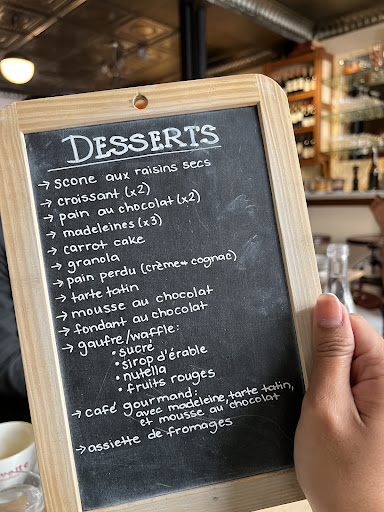 DESSERTS
→ scone aux raisins secs
→ croissant (x2)
→ pain au chocolat (x2)
→ madeleines (x3)
→ carrot cake
→ granola
→ pain perdu (crème + cognac)
→ tarte tatin
→ mousse au chocolat
→ fondant au chocolat
→ gaufre/waffle:
• sucré
• sirop d'érable
• nutella
• fruits rouges
→ café gourmand:
avec madeleine, tarte tatin,
et mousse au chocolat
→ assiette de fromages